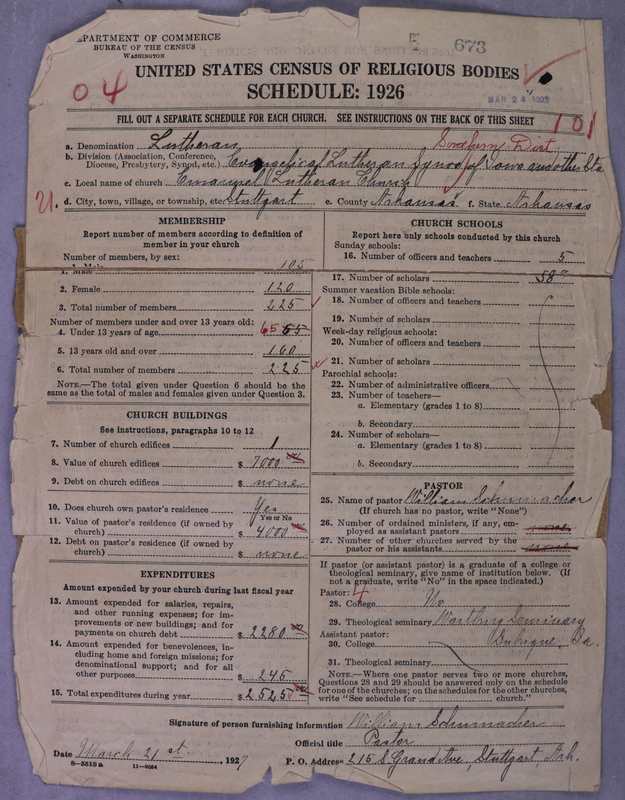 DEPARTMENT OF COMMERCE
BUREAU OF THE CENSUS
WASHINGTON
E 673
UNITED STATES CENSUS OF RELIGIOUS BODIES
SCHEDULE: 1926
04
MAR 24 1927
FILL OUT A SEPARATE SCHEDULE FOR EACH CHURCH. SEE INSTRUCTIONS ON THE BACK OF THIS SHEET
101
a. Denomination Lutheran Southern Dist.
b. Division (Association, Conference, Diocese, Presbytery, Synod, etc.) Evangelical Lutheran Synod of Iowa and other Sta
c. Local name of church Emanuel Lutheran Church
d. City, town, village, or township, etc. Stuttgart e. County Arkansas f. State Arkansas
MEMBERSHIP
Report number of members according to definition of member in your church
Number of members, by sex:
1. Male 105
2. Female 120
3. Total number of members 225
Number of members under and over 13 years old:
4. Under 13 years of age 65 65
5. 13 years old and over 160
6. Total number of members 225
NOTE.—The total given under Question 6 should be the same as the total of males and females given under Question 3.
CHURCH BUILDINGS
See instructions, paragraphs 10 to 12
7. Number of church edifices 1
8. Value of church edifices $ 7000 00
9. Debt on church edifices $ none
10. Does church own pastor's residence? Yes
Yes or No
11. Value of pastor's residence (if owned by church) $ 4000 00
12. Debt on pastor's residence (if owned by church) $ none
EXPENDITURES
Amount expended by your church during last fiscal year
13. Amount expended for salaries, repairs, and other running expenses; for improvements or new buildings; and for payments on church debt $ 2280 00
14. Amount expended for benevolences, including home and foreign missions; for denominational support; and for all other purposes $ 245
15. Total expenditures during year $ 2525 00
CHURCH SCHOOLS
Report here only schools conducted by this church
Sunday schools:
16. Number of officers and teachers 5
17. Number of scholars 58
Summer vacation Bible schools:
18. Number of officers and teachers
19. Number of scholars
Week-day religious schools:
20. Number of officers and teachers
21. Number of scholars
Parochial schools:
22. Number of administrative officers
23. Number of teachers—
a. Elementary (grades 1 to 8)
b. Secondary
24. Number of scholars—
a. Elementary (grades 1 to 8)
b. Secondary
PASTOR
25. Name of pastor William Schumacher
(If church has no pastor, write "None")
26. Number of ordained ministers, if any, employed as assistant pastors none
27. Number of other churches served by the pastor or his assistants
If pastor (or assistant pastor) is a graduate of a college or theological seminary, give name of institution below. (If not a graduate, write "No" in the space indicated.)
Pastor: 4
28. College No
29. Theological seminary Wartburg Seminary
Assistant pastor: Dubuque, Ia.
30. College
31. Theological seminary
NOTE.—Where one pastor serves two or more churches, Questions 28 and 29 should be answered only on the schedule for one of the churches; on the schedules for the other churches, write "See schedule for church."
Signature of person furnishing information William Schumacher
Official title Pastor
Date March 21 st, 1927
P. O. Address 215 S. Grand Ave, Stuttgart, Ark.
8-5518a 11-9054